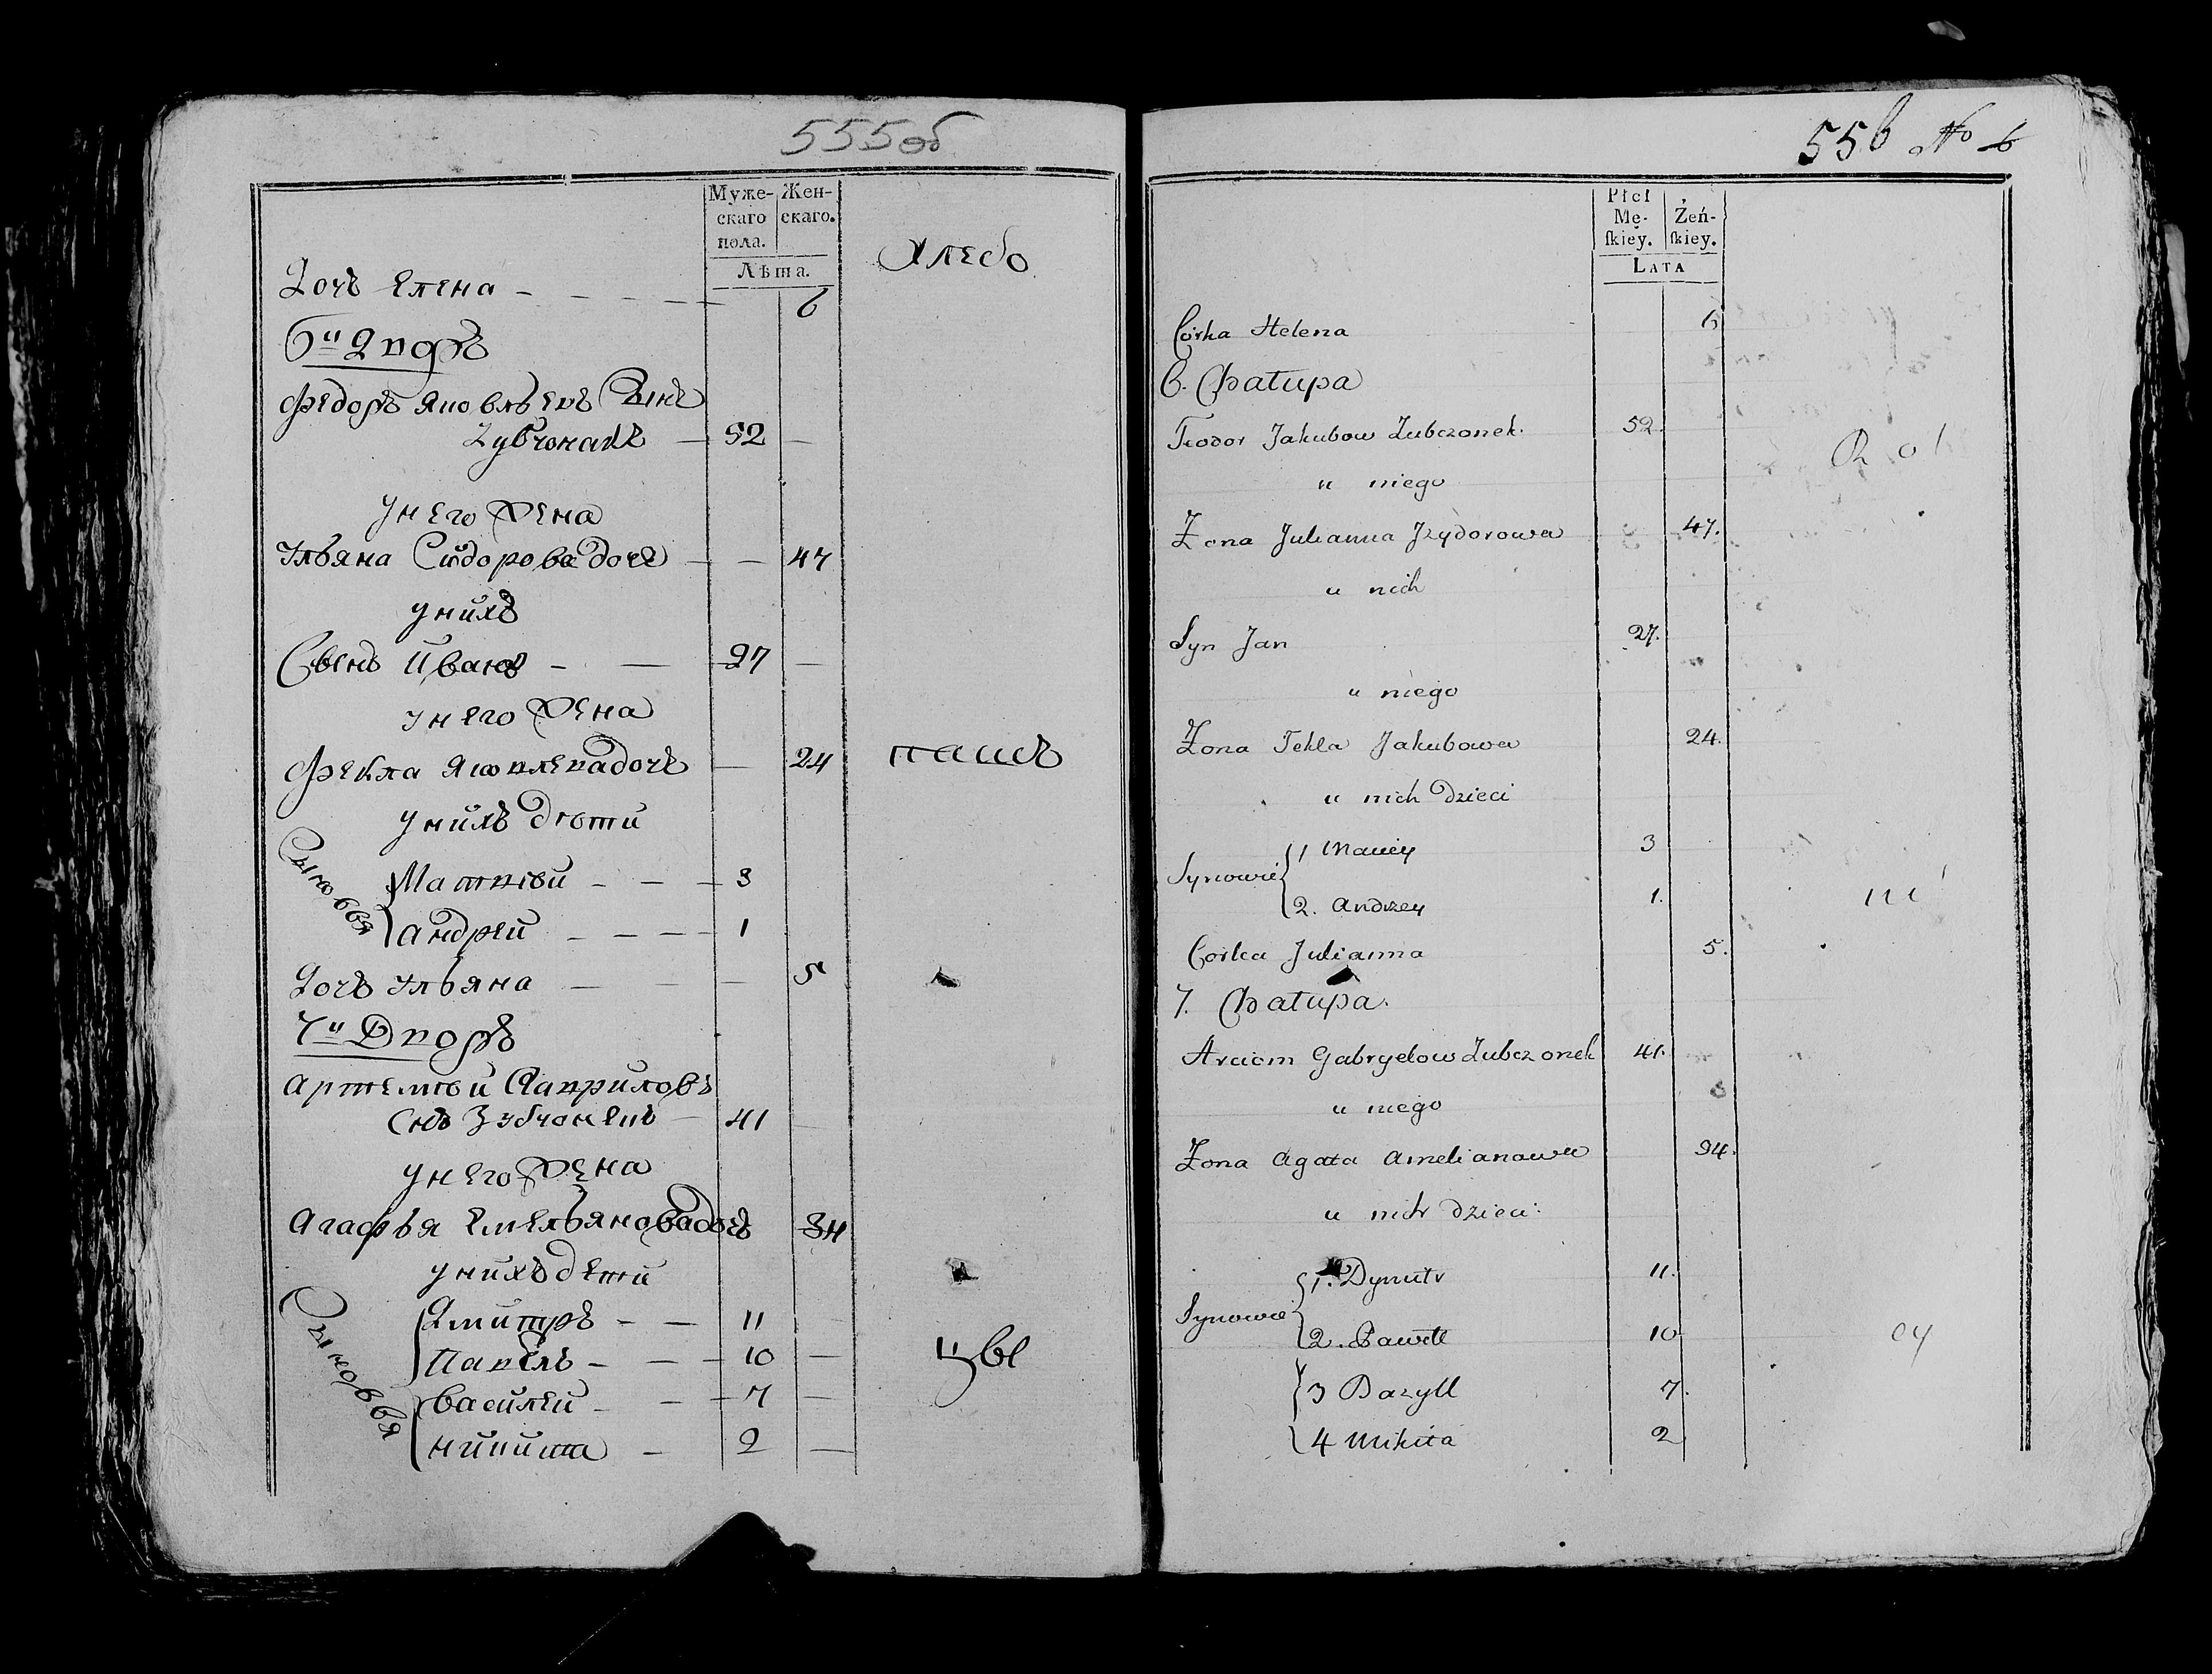 555об
Муже-
скаго
пола.
Жен-
скаго.
Лѣта.
Хлебо
Дочь Елена 6
6й Дворъ
Федоръ Яковлевъ Сынъ
Зубчонакъ 52
У него жена
Ульяна Сидорова дочь 47
У нихъ
Сынъ Иванъ 27
У него жена
Фекла Яковлева дочь 24
пашъ
У нихъ дѣти
Сыновья
Матвѣй 3
Андрей 1
Дочь Ульяна 5
7й Дворъ
Артемѣй Гавриловъ
Снъ Зубчонекъ 41
У него жена
Агафья Емельянова дочь 34
У нихъ дети
Сыновья
Дмитръ 11
Павелъ 10
цы
Василей 7
Никита 2
556 No 6
Płci
Mę-
ſkiey.
Żeń-
ſkiey.
LATA
Córka Helena 6
6. Chałupa
Teodor Jakubow Zubczonek. 52.
u niego
Żona Julianna Jzydorowa 47.
u nich
Syn Jan 27.
u niego
Żona Tekla Jakubowa 24.
u nich Dzieci
Synowie
1 Maciey 3
2. Andrzey 1.
Corka Julianna 5.
7. Chałupa.
Arciom Gabryelow Zubczonek 41.
u niego
Żona Agata Amelianowa 34.
u nich Dzieci:
Synowie
1. Dymitr 11.
2. Paweł 10
3 Bazyll 7.
4 Mikita 2